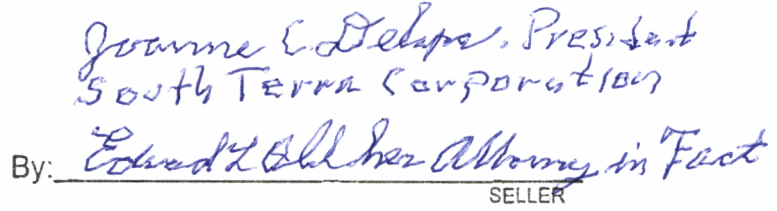 Joanne E. President
South Terra Corporation
By: Edward L her Attorney in Fact
SELLER